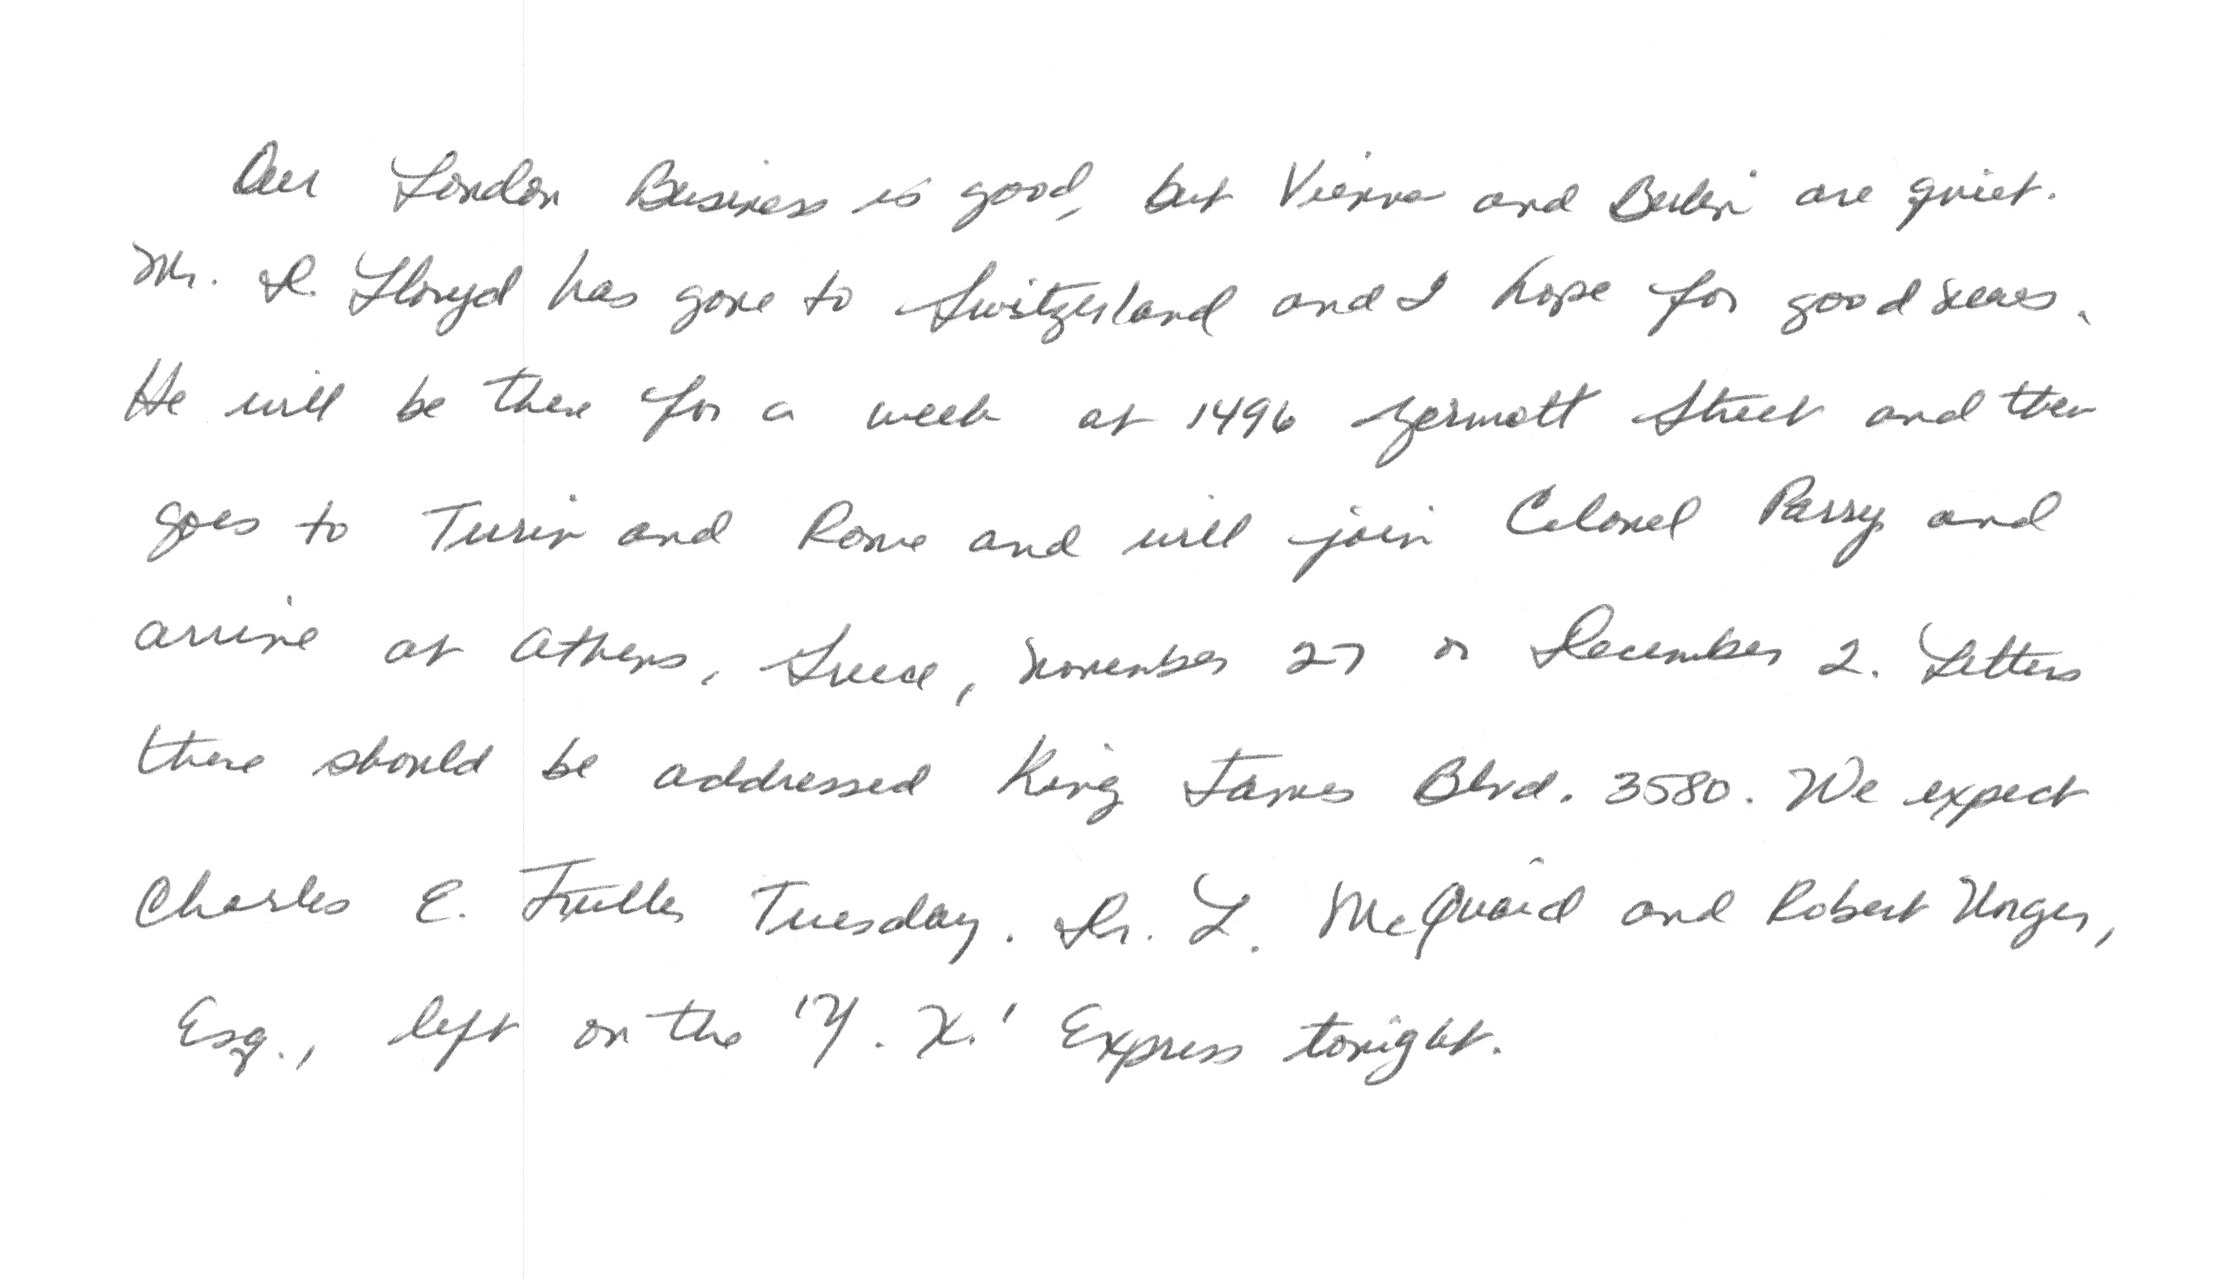 Our London Business is good, but Vienna and Berlin are quiet.
Mr. D. Lloyd has gone to Switzerland and I hope for good news.
He will be there for a week at 1496 Zermott Street and then
goes to Turin and Rome and will join Colonel Parry and
arrive at Athens, Greece, November 27 or December 2. Letters
there should be addressed King James Blvd. 3580. We expect
Charles E. Fuller Tuesday. Dr. L. McQuaid and Robert Unger,
Esq., left on the 'Y. X.' Express tonight.